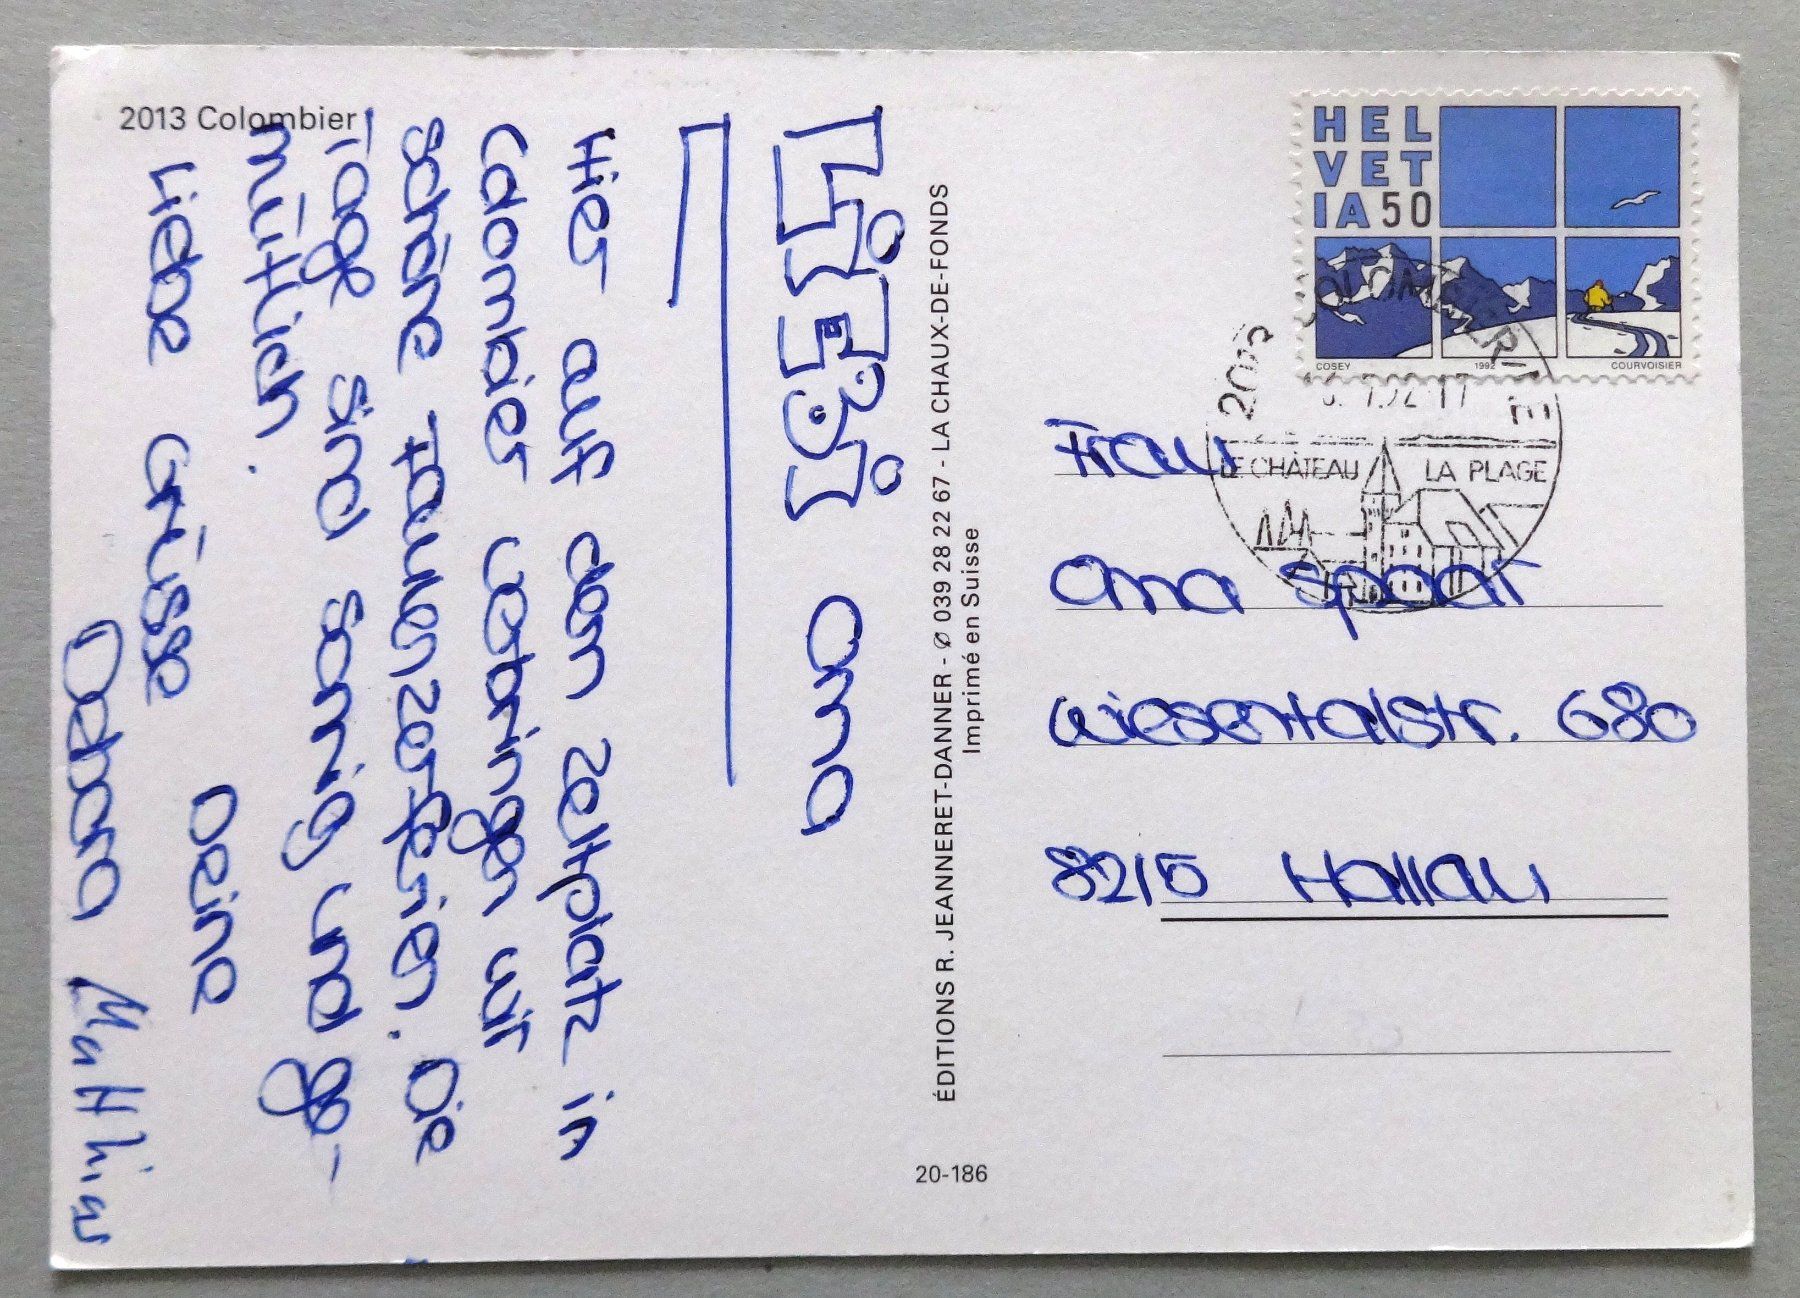 2013 Colombier
LiEBi Oma
Hier auf dem Zeltplatz in
Colombier verbringen wir
schöne Faulenzerferien. Die
Tage sind sonnig und ge-
mütlich.
Liebe Grüsse
Deine
Debora Matthias
ÉDITIONS R. JEANNERET-DANNER - ✆ 039 28 22 67 - LA CHAUX-DE-FONDS
Imprimé en Suisse
20-186
HEL
VET
IA 50
COSEY 1992 COURVOISIER
2013 COLOMBIER NE
7.92-17
LE CHÂTEAU LA PLAGE
Frau
Oma Spaar
Wiesentalstr. 680
8215 Hallau